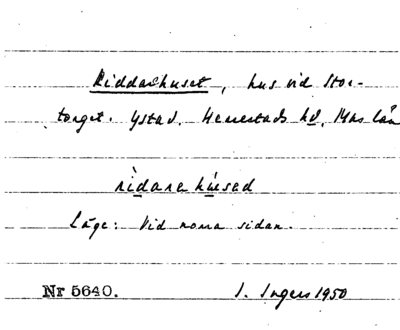 Riddarhuset, hus vid Stor-
torget. Ystad. Herrestads hd. Mas län
rìdarehúsed
Läge: Vid norra sidan.
Nr 5640. I. Ingers 1950